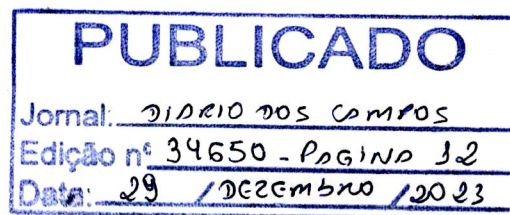 PUBLICADO
Jornal: DIARIO DOS CAMPOS
Edição nº 34650 - PAGINA 12
Data: 29 / DEZEMBRO / 2023